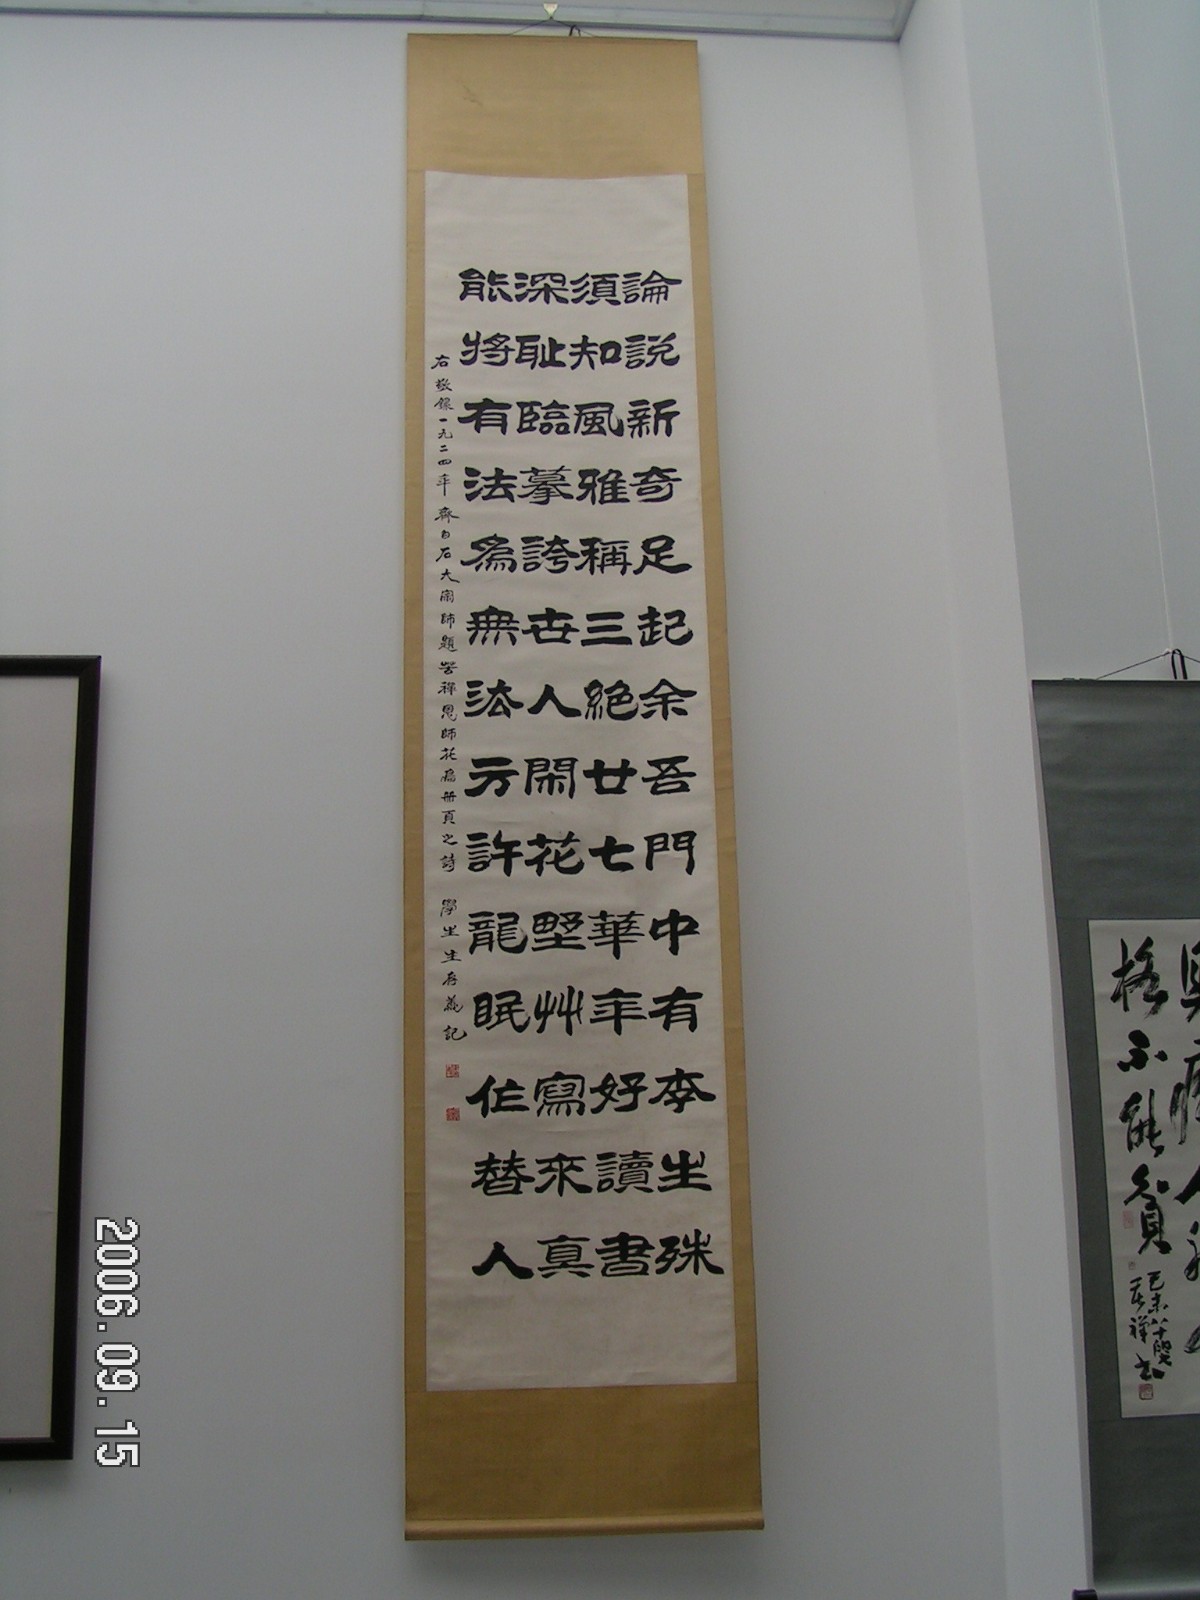 論説新奇足起余吾門中有李生殊
須知風雅稱三絶廿七華年好讀書
深耻臨摹誇世人閑花野艸寫來真
能將有法爲無法方許龍眠作替人
右敬錄一九二四年齊白石大宗師題苦禪恩師花鳥册頁之詩 學生生存義記
格不能貧
2006.09.15